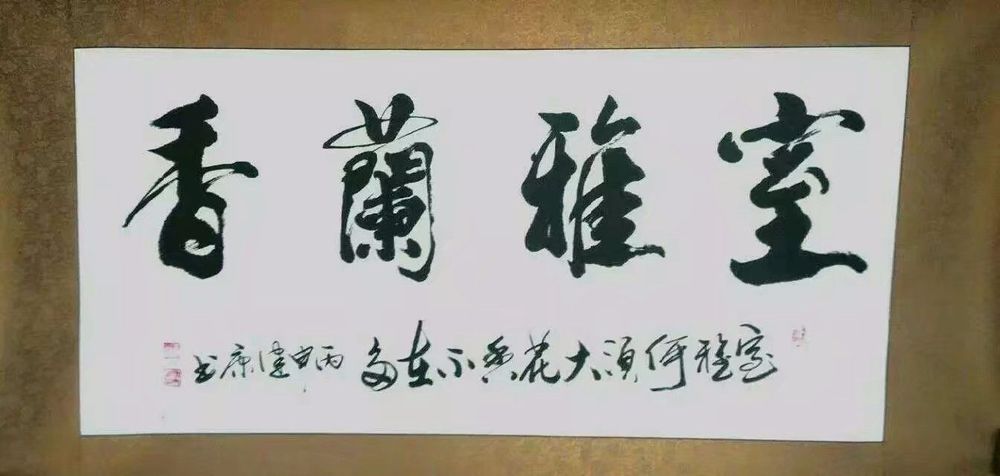 室雅蘭香
室雅何須大花香不在多丙申建康书